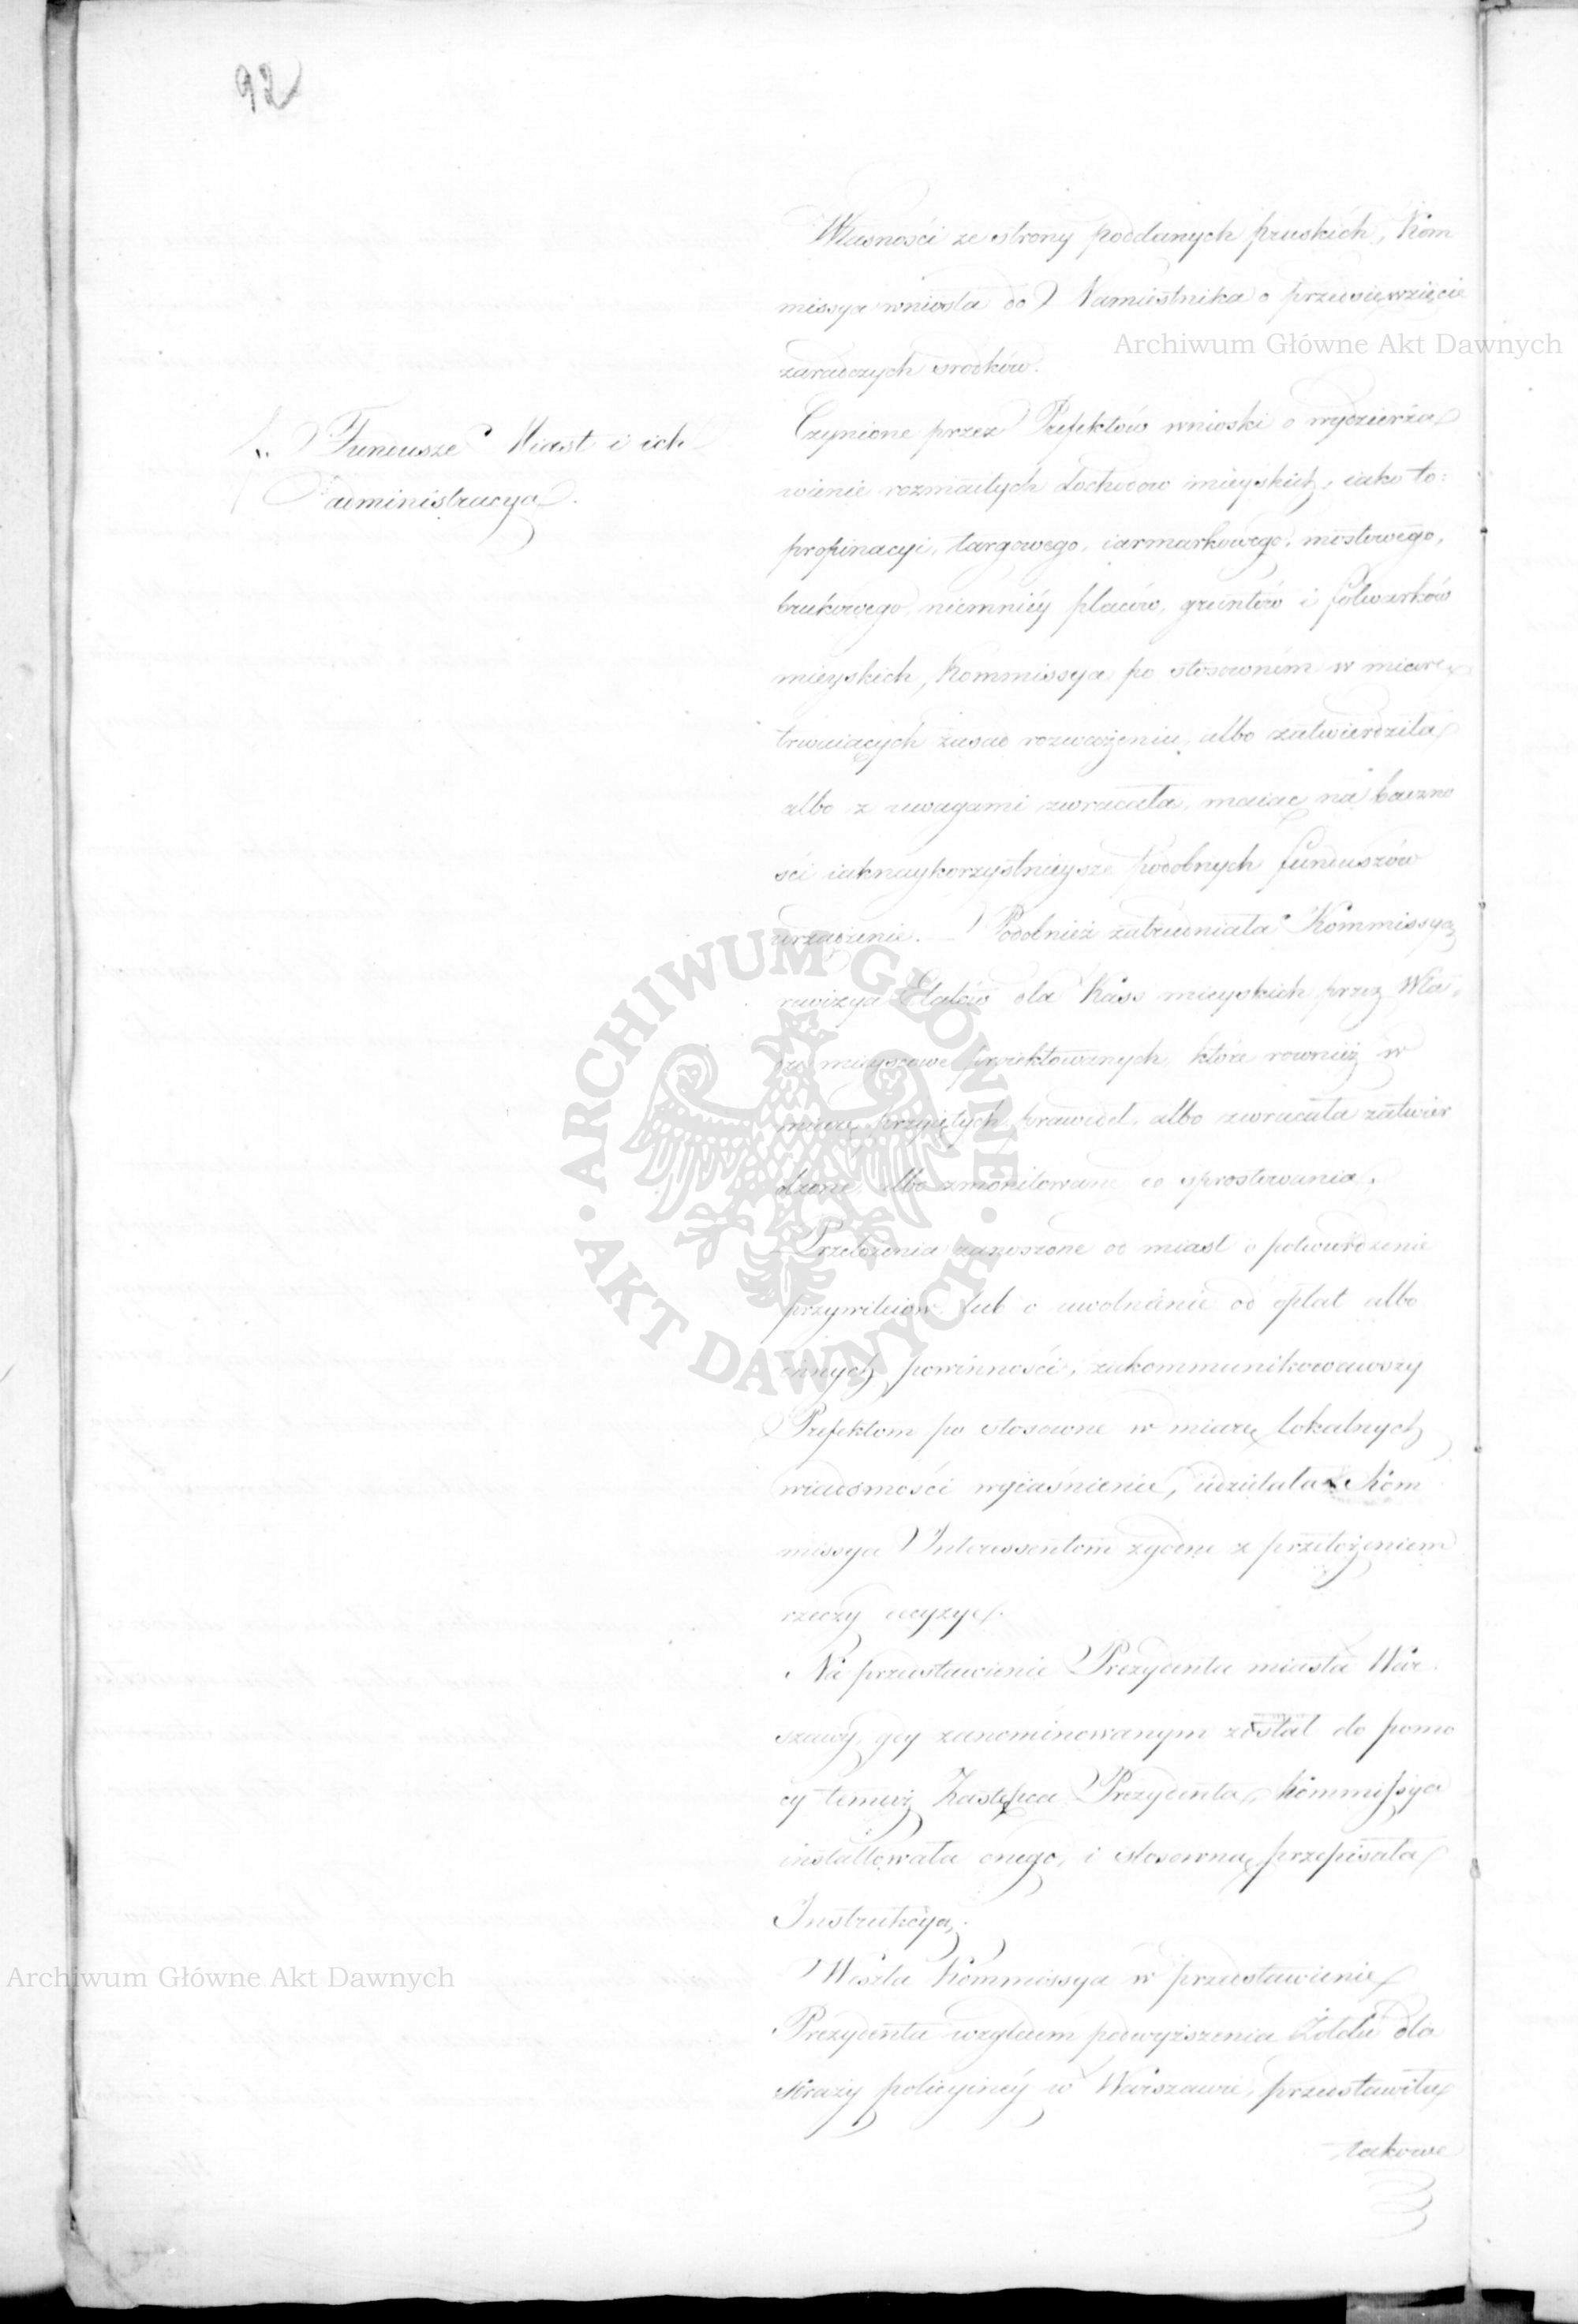 92
Własności ze strony poddanych pruskich, Kom
missya wniosła do Namiestnika o przedsięwzięcie
Archiwum Główne Akt Dawnych
zaradczych srodków.
Fundusze Miast i ich
administracya.
Czynione przez Prefektów wnioski o wydzierża
wienie rozmaitych dochodow mieyskich, iako to:
propinacyi, targowego, iarmarkowego, mostowego,
brukowego, niemniéy placów, gruntów i folwarków
mieyskich, Kommissya po stosowném w miarę
trwaiących zasad rozważeniu, albo zatwierdziła
albo z uwagami zwracała, maiąc na baczno
ści iaknaykorzystnieysze podobnych funduszów
urządzenie. — Podobnież zatrudniała Kommissyą
rewizya Etatów dla Kass mieyskich przez Wła-
dze mieyscowe proiektowanych, które rownież w
miarę przyiętych prawideł, albo zwracała zatwier
dzone, albo zmonitowane do sprostowania.
Przełożenia zanoszone od miast o potwierdzenie
przywileiow lub o uwolnienie od opłat albo
innych powinności, zakommunikowawszy
Prefektom po stosowne w miarę lokalnych
wiadomości wyiaśnienie, udzielała Kom
missya Interessentom zgodne z przełożeniem
rzeczy decyzye.
Na przedstawienie Prezydenta miasta War
szawy, gdy zanominowanym został do pomo
cy temuż Zastępca Prezydenta, Kommissya
installowała onego, i stosowną przepisała
Instrukcyą.
Weszła Kommissya w przedstawienie
Archiwum Główne Akt Dawnych
Prezydenta względem podwyższenia Żołdu dla
Straży policyinéy w Warszawie, przedstawiła
takowe
ARCHIWUM GŁÓWNE · AKT DAWNYCH ·